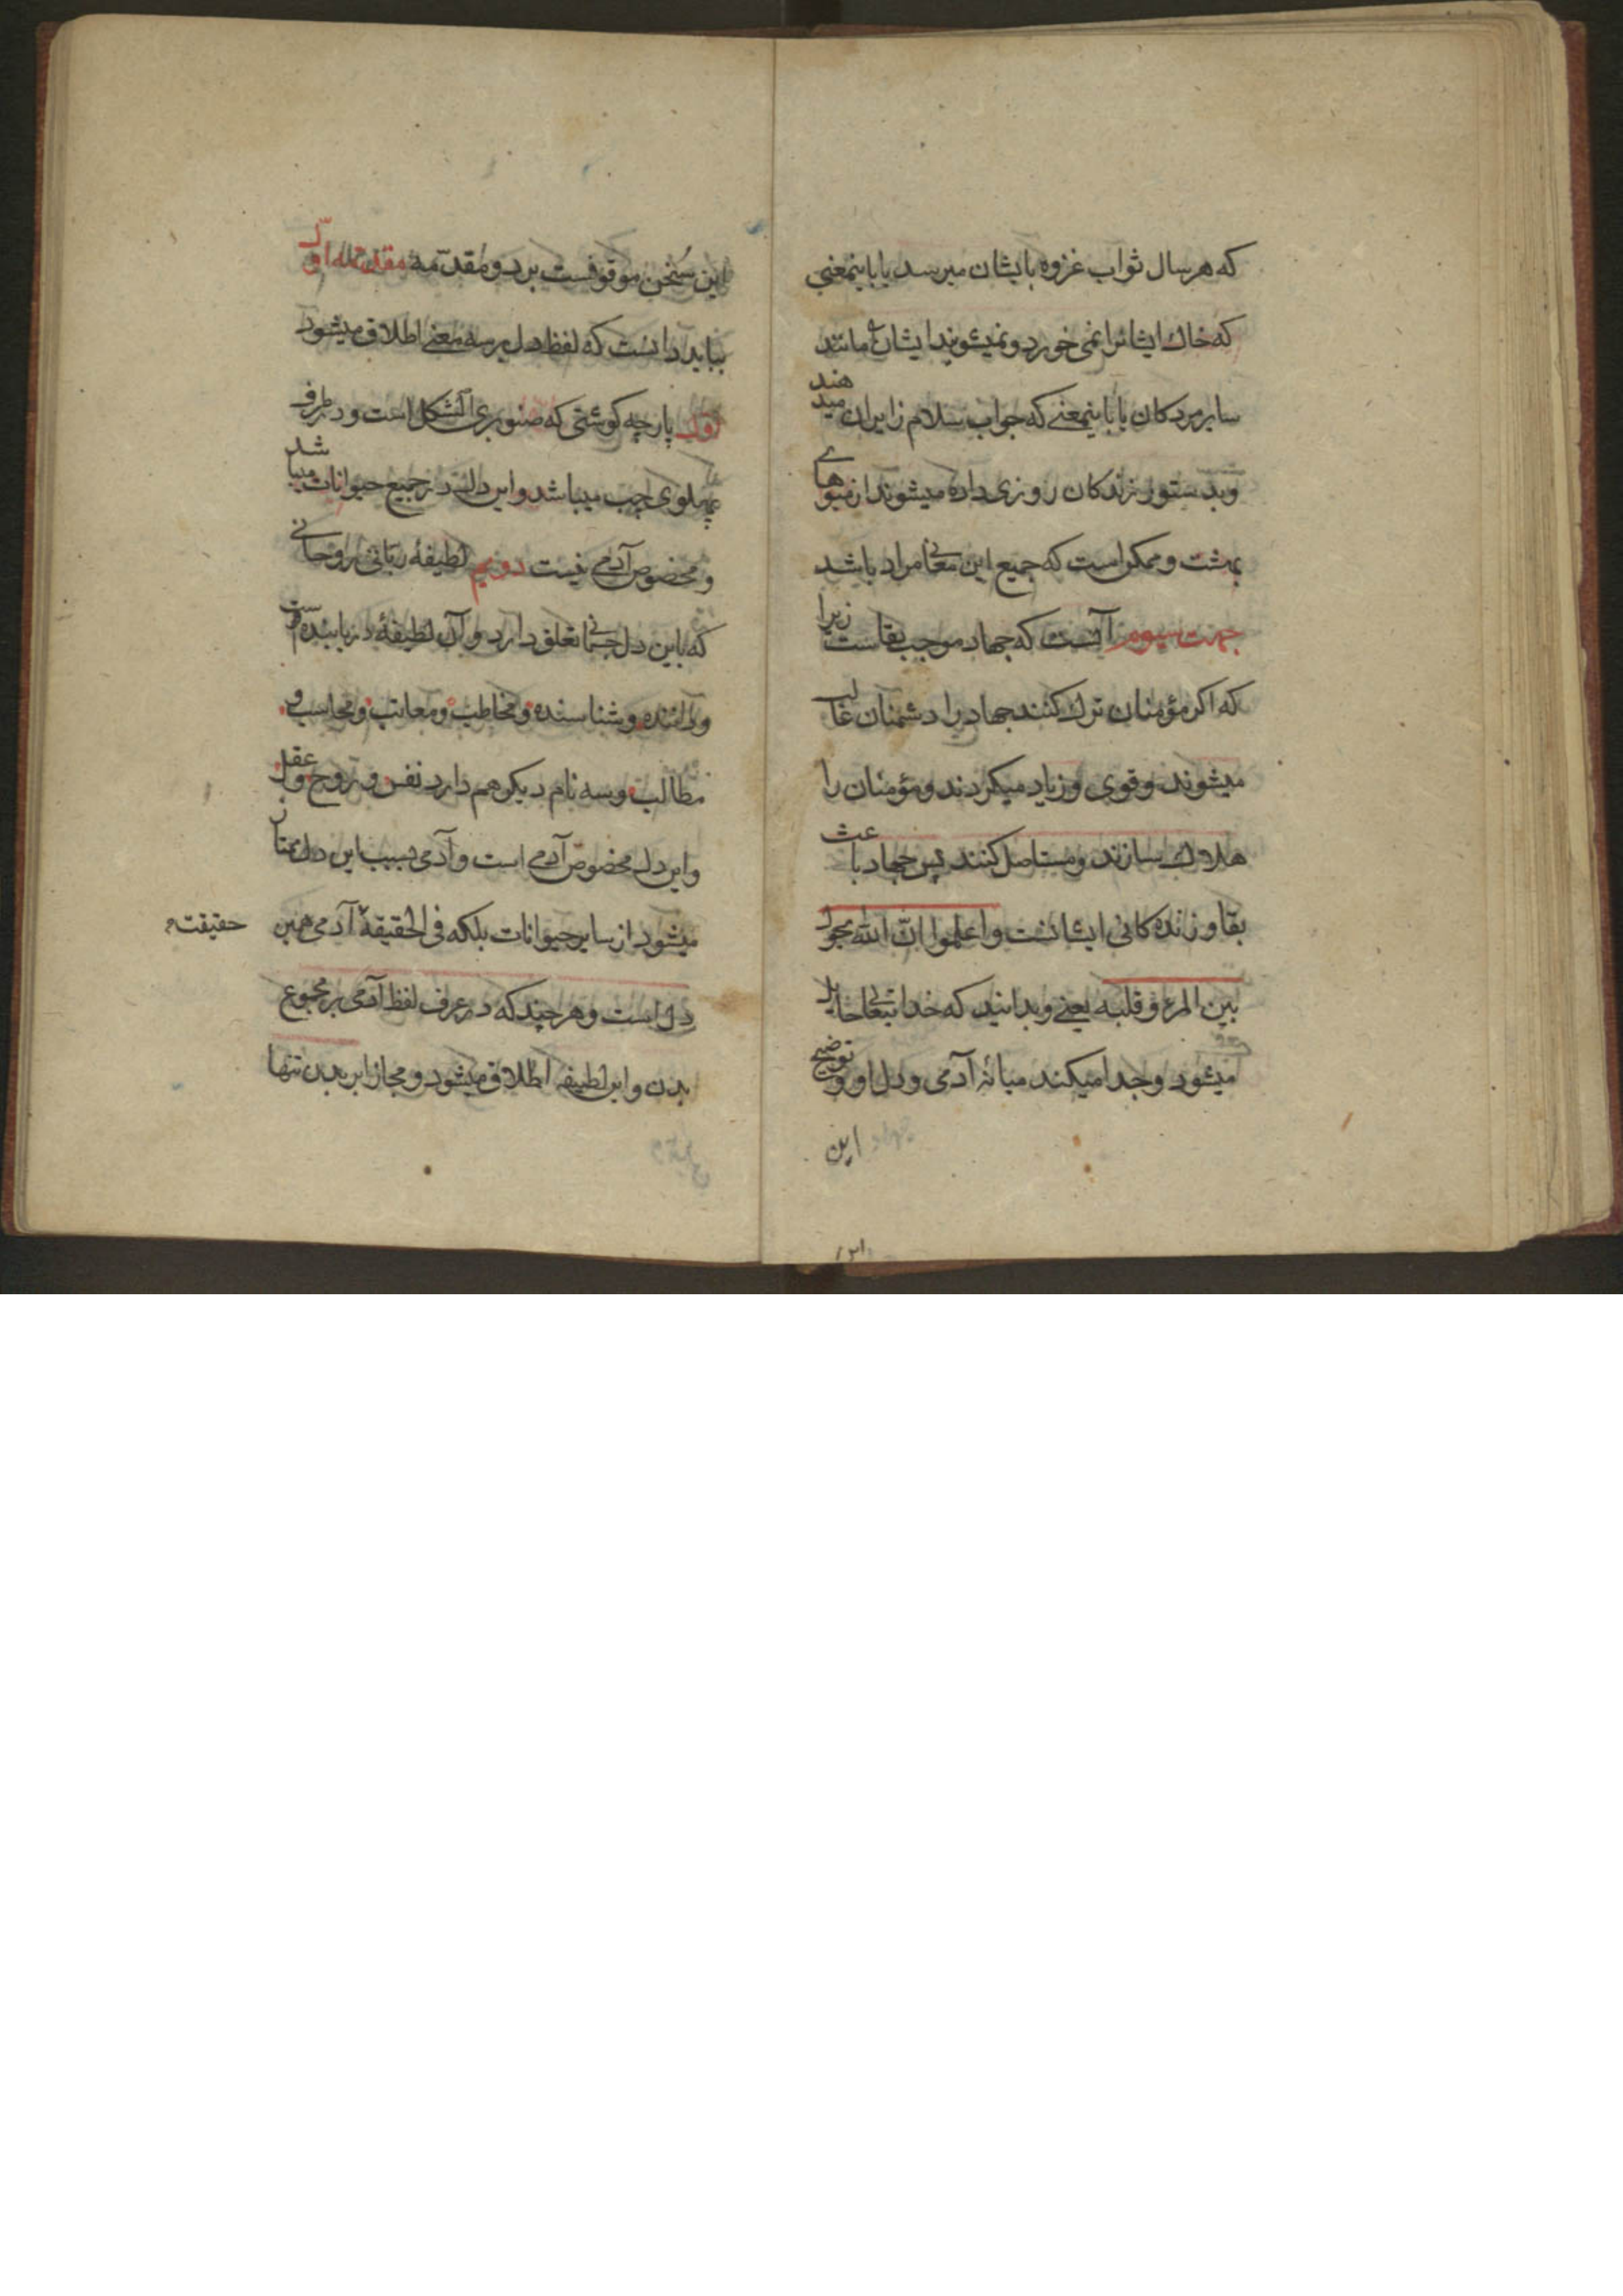 که هر سال ثواب غزوه بایشان میرسد یا باینمعنی
که خاک ایشانرا نمی خورد و نمیشویند ایشانرا مانند
سایر مردکان یا باینمعنی که جواب سلام زایران میدهند
و بدستور زندکان روزی داده میشوند از میوهای
بهشت و ممکن است که جمیع این معانی مراد باشد
جهت سیوم آنست که جهاد موجب بقاست زیرا
که اکر مؤمنان ترک کنند جهاد را دشمنان غالب
میشوند و قوی و زیاد میکردند و مؤمنان را
هلاک سازند و مستاصل کنند پس جهاد باعث
بقا و زنده کانی ایشانست واعلموا انّ الله یحول
بین المرء و قلبه یعنی و بدانید که خدا تبعالی حایل
میشود و جدا میکند میانهٔ آدمی و دل او و توضیح
این
۱۲۱
این سُخن موقوفست بر دو مقدّمه مقدّمه اوّل
بباید دانست که لفظ دل بر سه معنی اطلاق میشود
اوّل پارچه کوشتی که صنوبری الشکل است و در طرف
پهلوی چپ میباشد و این دل در جمیع حیوانات میباشد
و مخصوص آدمی نیست دویم لطیفهٔ ربّانی روحانی
که باین دل جسمانی تعلق دارد و آن لطیفهٔ دریابنده است
و داننده و شناسنده و مخاطب و معاتب و محاسب و
مطالب و سه نام دیکر هم دارد نفس و روح و عقل
و این دل مخصوص آدمی است و آدمی بسبب این دل ممتاز
میشود از سایر حیوانات بلکه فی الحقیقة آدمی همین
حقیقته
دل است و هر چند که در عرف لفظ آدمی بر مجموع
بدن و این لطیفه اطلاق میشود و مجازا بر بدن تنها